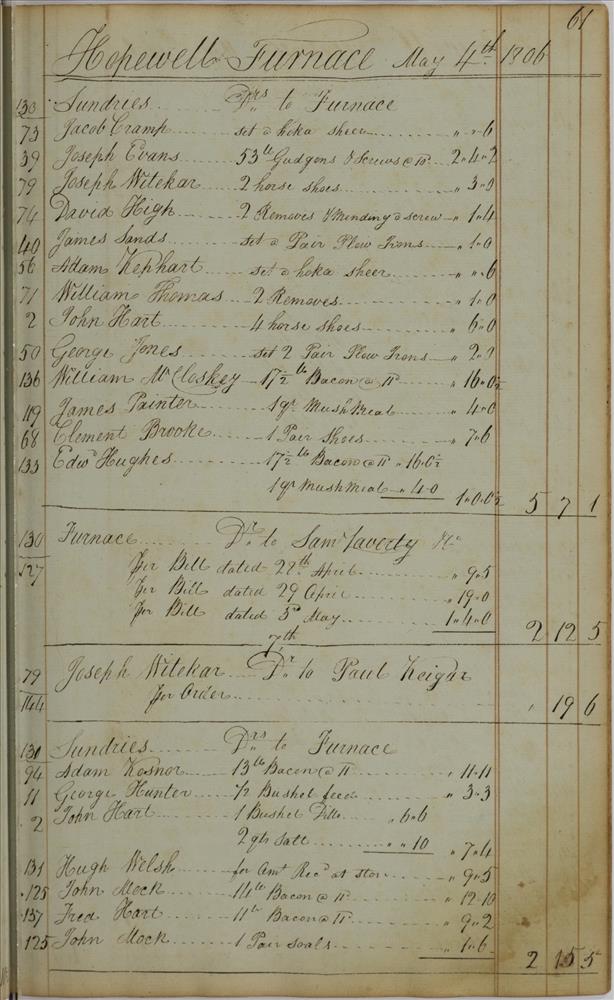 61
Hopewell Furnace May 4th 1806
130 Sundries Drs to Furnace
73 Jacob Cramp set a hoka sheer " " 6
39 Joseph Evans 53lb Gudgons & Screws @ 10d 2 " 4 " 2
79 Joseph Witekar 2 horse shoes " 3 " 0
74 David High 2 Removes & Mending a screw " 1 " 4
40 James Sands set a Pair Plow Irons " 1 " 0
56 Adam Kephart set a hoka sheer " " 6
71 William Thomas 2 Removes " 1 " 0
2 John Hart 4 horse shoes " 6 " 0
50 George Jones set 2 Pair Plow Irons " 2 "
136 William McCloskey 17½ lb Bacon @ 11 " 16 " 0½
119 James Painter 1 qr Mush Meal " 4 " 0
68 Clement Brooke 1 Pair Shoes " 7 " 6
133 Edwd Hughes 17½ lb Bacon @ 11 " 16 " 0½
1 qr Mush Meal " 4 " 0 1 " 0 " 0½ 5 7 1
130 Furnace Dr to Saml Laverty
127 for Bill dated 22th April " 9 " 5
for Bill dated 29 April " 19 " 0
for Bill dated 5th May 1 " 4 " 0 2 12 5
7th
79 Joseph Witekar Dr to Paul Keigar
144 for Order " 19 6
130 Sundries Drs to Furnace
94 Adam Kosnor 13lb Bacon @ 11 " 11 " 11
11 George Hunter 1/2 Bushel feed " 3 " 3
2 John Hart 1 Bushel Ditto " 6 " 6
2 qts Salt " " 10 " 7 " 4
131 Hugh Welsh for Amt Recd at store " 9 " 5
125 John Mock 14lb Bacon @ 11 " 12 " 10
137 Fred Hart 11lb Bacon @ 10 " 9 " 2
125 John Mock 1 Pair soals " 1 " 6 2 15 5